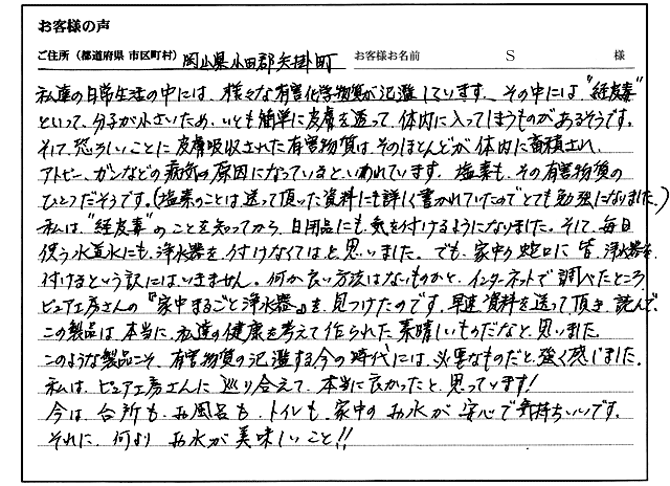 お客様の声
ご住所（都道府県 市区町村） 岡山県小田郡矢掛町 お客様お名前 S 様
私達の日常生活の中には、様々な有害化学物質が氾濫しています。その中には"経皮毒"
といって、分子が小さいため、いとも簡単に皮膚を通って、体内に入ってしまうものがあるそうです。
そして恐ろしいことに皮膚吸収された有害物質は、そのほとんどが体内に蓄積され、
アトピー、ガンなどの病気の原因になっているといわれています。塩素も、その有害物質の
ひとつだそうです。（塩素のことは送って頂いた資料にも詳しく書かれていたのでとても勉強になりました。）
私は、"経皮毒"のことを知ってから、日用品にも気を付けるようになりました。そして、毎日
使う水道水にも、浄水器を付けなくてはと思いました。でも、家中の蛇口に皆、浄水器を
付けるという訳にはいきません。何か良い方法はないものかと、インターネットで調べたところ
ピュア工房さんの『家中まるごと浄水器』を見つけたのです。早速資料を送って頂き、読んで、
この製品は、本当に、私達の健康を考えて作られた素晴しいものだなと思いました。
このような製品こそ、有害物質の氾濫する今の時代には、必要なものだと強く感じました。
私は、ピュア工房さんに巡り合えて、本当に良かったと思っています！
今は、台所も、お風呂も、トイレも、家中のお水が安心で気持ちいいです。
それに、何よりお水が美味しいこと！！